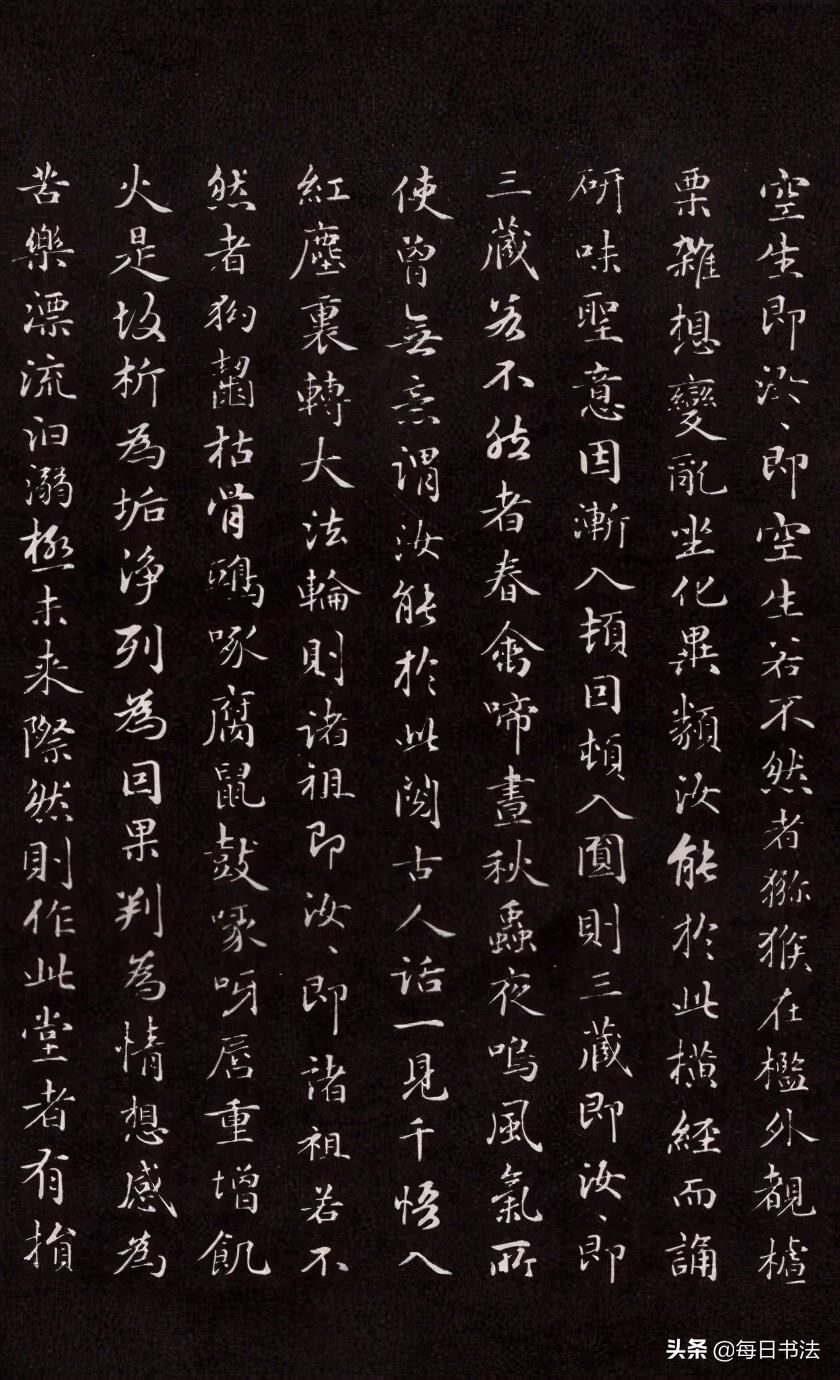 空生即汝、即空生若不然者獼猴在檻外覩樝
栗雜想變亂坐化異類汝能於此橫經而誦
研味聖意因漸入頓因頓入圓則三藏即汝、即
三藏若不然者春禽啼晝秋蟲夜鳴風氣所
使曾無意謂汝能於此閱古人話一見千悟入
紅塵裏轉大法輪則諸祖即汝、即諸祖若不
然者狗齧枯骨鴟啄腐鼠鼓喙呀唇重增飢
火是故析為垢淨列為因果判為情想感為
苦樂漂流汩溺極未來際然則作此堂者有損
头条 @每日书法